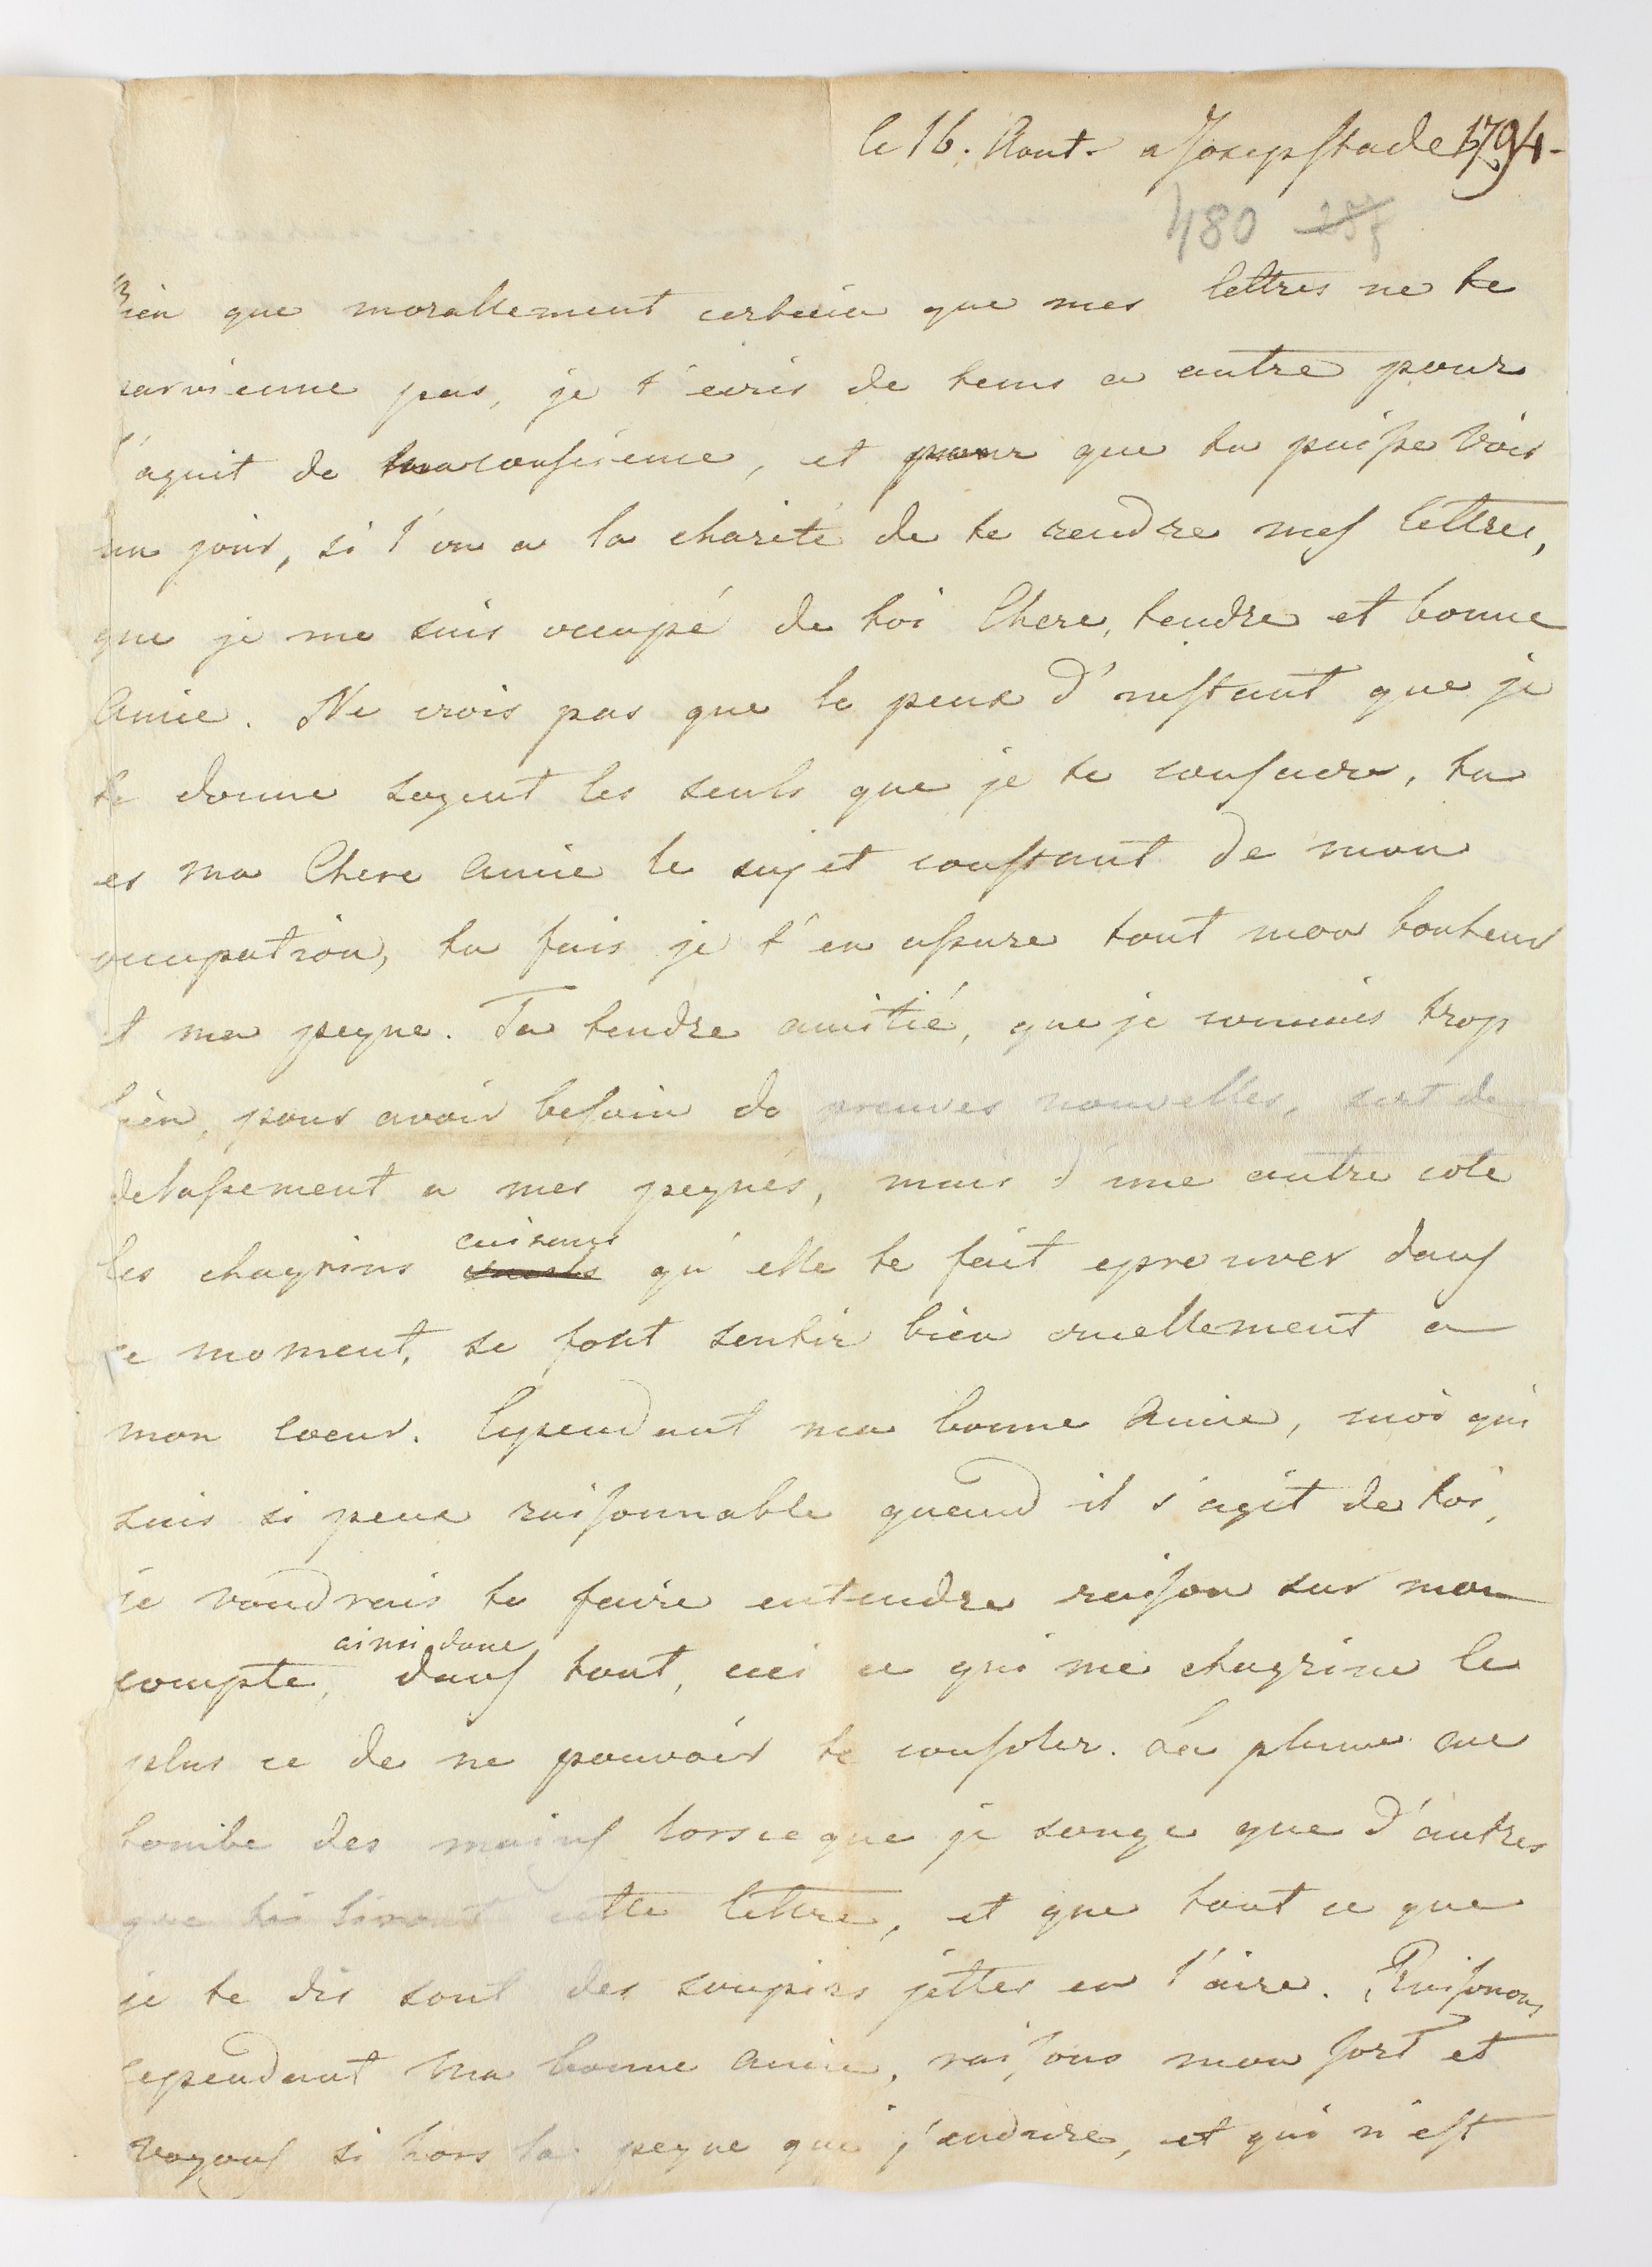 le 16. Aout. a Josepstade 1794-
480 287
Bien que morallement certain que mes lettres ne te
parvienne pas, je t'ecris de tems a autre pour
l'aquit de ma consience, et pour que tu puisse voir
un jour, si l'on a la charité de te rendre mes lettres,
que je me suis occupé de toi Chere, tendre et bonne
Amie. Ne crois pas que le peux d'instant que je
te donne soyent les seuls que je te consacre, tu
es ma Chere Amie le sujet constant de mon
occupation, tu fais je t'en assure tout mon bonheur
et ma peyne. Ta tendre amitié, que je connais trop
bien, pour avoir besoin de preuves nouvelles, sert de
delassement a mes peynes, mais d'une autre cote
les chagrins cuisans qu'elle te fait eprouver dans
ce moment, se font sentir bien cruellement a
mon coeur. Cependant ma bonne Amie, moi qui
suis si peux raisonnable quand il s'agit de toi,
je voudrais te faire entendre raison sur mon
compte, ainsi donc dans tout, ceci ce qui me chagrine le
plus ce de ne pouvoir te consoler. La plume me
tombe des mains lorsceque je songe que d'autres
que toi liront cette lettre, et que tout ce que
je te dis sont des soupirs jettes en l'aire. Raisonons
cependant ma bonne amie, raisons mon sort et
voyons si hors la peyne que j'endure, et qui n'est